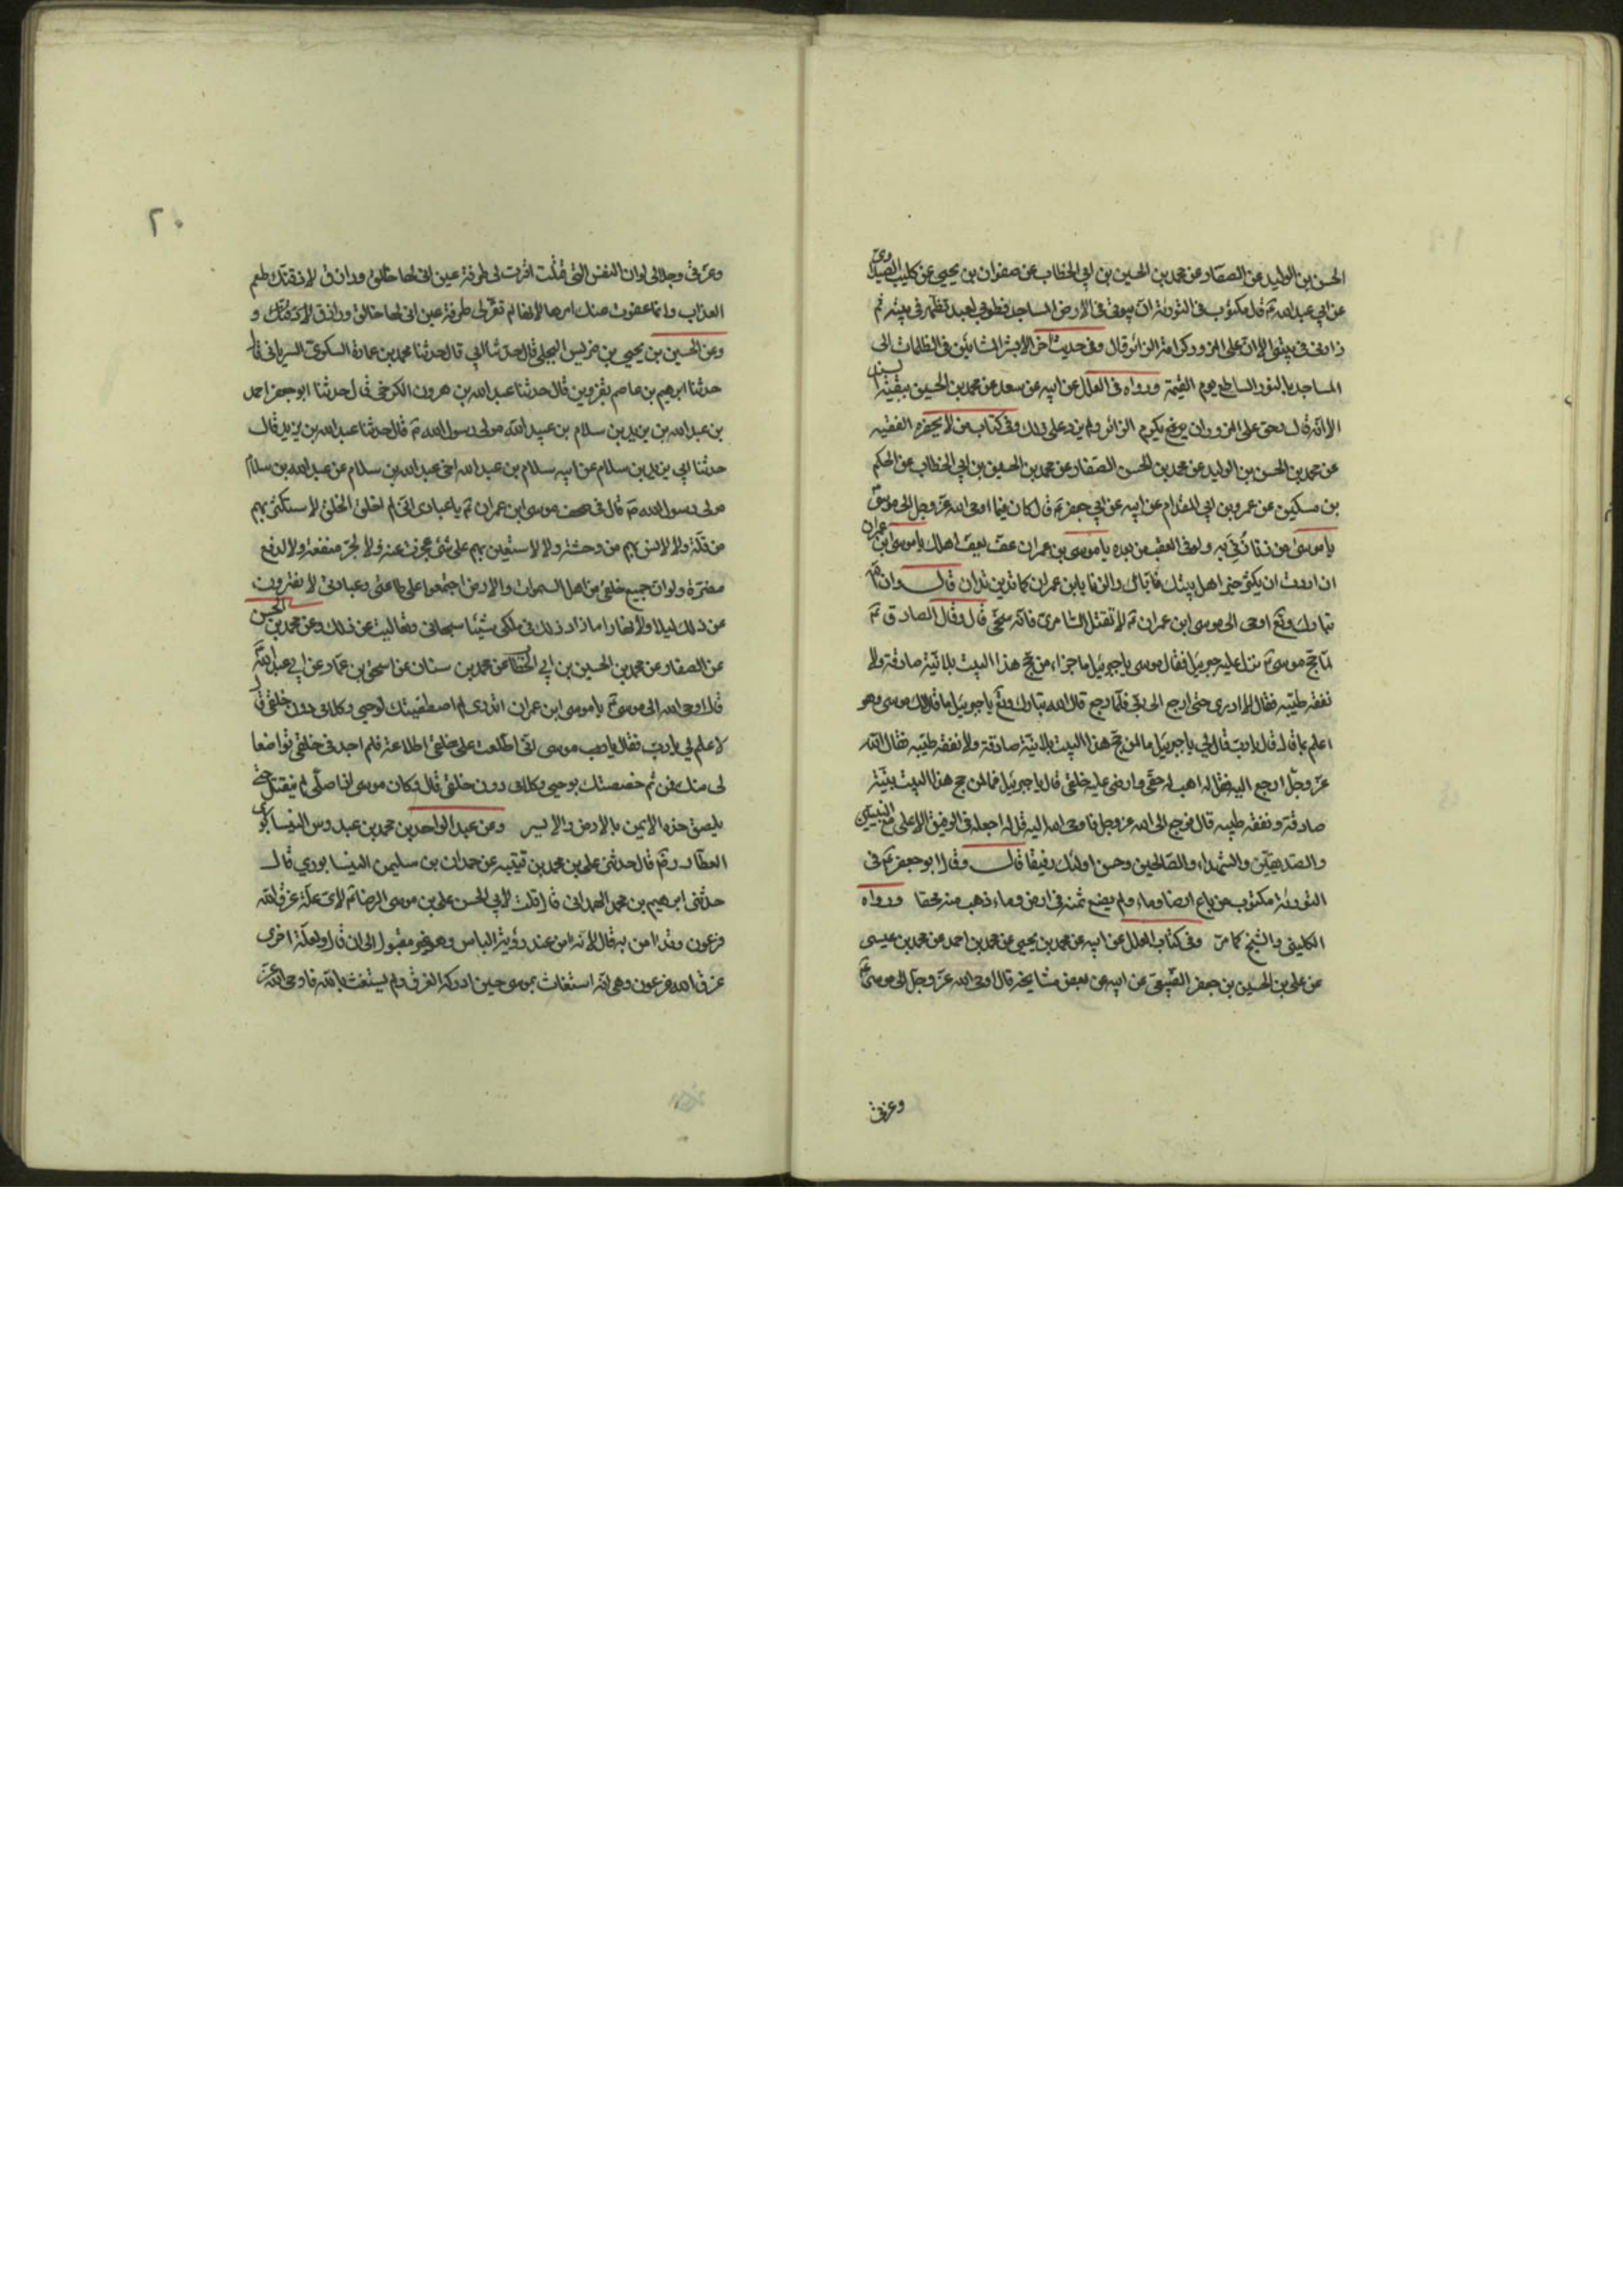 الحسن بن الوليد عن الصفار عن محمد بن الحسين بن ابي الخطاب عن صفوان بن يحيى عن كليب الصيداوي
عن ابي عبد الله ع قال مكتوب في التورية ان بيوتي في الارض المساجد فطوبى لعبد تطهر في بيته ثم
زارني في بيتي الا ان على المزور كرامة الزائر قال وفي حديث آخر الا بشر المشائين في الظلمات الى
المساجد بالنور الساطع يوم القيمة ورواه في العلل عن ابيه عن سعد عن محمد بن الحسين ببقية السند
الا انه قال وحق على المزور ان يكرم الزائر ولم يزد على ذلك وفي كتاب من لا يحضره الفقيه
عن محمد بن الحسن بن الوليد عن محمد بن الحسن الصفار عن محمد بن الحسين بن ابي الخطاب عن الحكم
بن مسكين عن عمرو بن ابي المقدام عن ابيه عن ابي جعفر ع قال كان فيما اوحى الله عز وجل الى موسى
يا موسى من زنا زني به ولو في العقب من بعده يا موسى بن عمران عف يعف اهلك يا موسى ابن عمران
ان اردت ان يكثر خير اهل بيتك فاياك والزنا يا بن عمران كما تدين تدان قال وان الله
تبارك وتع اوحى الى موسى ابن عمران ع لا تقتل السامري فانه سخي قال وقال الصادق ع
لما حج موسى ع نزل عليه جبرئيل فقال موسى يا جبرئيل ما جزاء من حج هذا البيت بلا نية صادقة ولا
نفقة طيبه فقال لا ادري حتى ارجع الى ربي فلما رجع قال الله تبارك وتع يا جبرئيل ما قال لك موسى وهو
اعلم بما قال قال يا رب قال لي يا جبرئيل ما لمن حج هذا البيت بلا نية صادقة ولا نفقة طيبه فقال الله
عز وجل ارجع اليه فقل له اهب له حقي وارضى عليه خلقي قال يا جبرئيل فما لمن حج هذا البيت بنية
صادقة ونفقة طيبه قال فرجع الى الله عز وجل فاوحى الله اليه قل له اجعله في الرفيق الاعلى مع النبيين
والصديقين والشهداء والصالحين وحسن اولئك رفيقا قال وقال ابو جعفر ع في
التورية مكتوب من باع ارضا وماء ولم يضع ثمنه في ارض وماء ذهب منه محقا ورواه
الكليني والشيخ كما مر وفي كتاب العلل عن ابيه عن محمد بن يحيى عن محمد بن احمد عن محمد بن عيسى
عن علي بن الحسين بن جعفر الضبي عن ابيه عن بعض مشايخه قال اوحى الله عز وجل الى موسى ع
وعزتي
٢٠
وعزتي وجلالي لو ان النفس التي قتلت اقرت لي طرفة عين اني لها خالق ورازق لاذقتك طعم
العذاب وانما عفوت عنك امرها لانها لم تقر لي طرفة عين اني لها خالق ورازق
وعن الحسين بن يحيى بن ضريس البجلي قال حدثنا ابي قال حدثنا محمد بن عمارة السكري السرياني قال
حدثنا ابرهيم بن عاصم بقزوين قال حدثنا عبد الله بن هرون الكرخي قال حدثنا ابو جعفر احمد
بن عبد الله بن يزيد بن سلام بن عبيد الله مولى رسول الله ص قال حدثنا عبد الله بن يزيد قال
حدثنا ابي يزيد بن سلام عن ابيه سلام بن عبد الله اخي عبد الله بن سلام عن عبد الله بن سلام
مولى رسول الله ص قال في صحف موسى ابن عمران ع يا عبادي اني لم اخلق الخلق لاستكثر بهم
من قلة ولا لانس بهم من وحشة ولا لاستعين بهم على شئ عجزت عنه ولا لجر منفعة ولا لدفع
مضرة ولو ان جميع خلقي من اهل السموات والارض اجتمعوا على طاعتي وعبادتي لا يفترون
عن ذلك ليلا ولا نهارا ما زاد ذلك في ملكي شيئا سبحاني وتعاليت عن ذلك وعن محمد بن الحسن
عن الصفار عن محمد بن الحسين بن ابي الخطاب عن محمد بن سنان عن اسحق بن عمار عن ابي عبد الله
قال اوحى الله الى موسى ع يا موسى ابن عمران اتدري لم اصطفيتك لوحيي وكلامي دون خلقي قال
لا علم لي يا رب فقال يا رب موسى اني اطلعت على خلقي اطلاعة فلم اجد في خلقي تواضعا
لي منك فمن ثم خصصتك بوحيي وكلامي دون خلقي قال وكان موسى اذا صلى لم ينفتل حتى
يلصق خده الايمن بالارض والايسر وعن عبد الواحد بن محمد بن عبدوس النيسابوري
العطار رض قال حدثني علي بن محمد بن قتيبه عن حمدان بن سليمن النيسابوري قال
حدثني ابرهيم بن محمد الهمداني قال قلت لابي الحسن علي بن موسى الرضا ع لاي علة غرق الله
فرعون وقد امن به قال لانه امن عند رؤية الباس وهو غير مقبول الى ان قال ولعلة اخرى
غرق الله فرعون وهي انه استغاث بموسى حين ادركه الغرق ولم يستغث بالله فاوحى الله عز